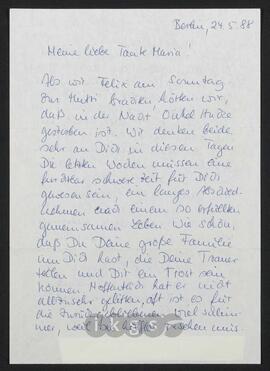 Berlin, 24.5.88
Meine liebe Tante Maria!
Als wir Felix am Sonntag
zur Mutti brachten, hörten wir,
daß in der Nacht Onkel
gestorben ist. Wir denken beide
sehr an Dich in diesen Tagen
Die letzten Wochen müssen eine
furchtbar schwere Zeit für Dich
gewesen sein, ein langes Abschied-
nehmen nach einem so erfüllten
gemeinsamen Leben. Wie schön,
daß Du Deine große Familie
um Dich hast, die Deine Trauer
teilen und Dir ein Trost sein
können. Hoffentlich hat er nicht
allzusehr gelitten, oft ist es für
die Zurückgebliebenen viel schlim-
mer, weil sie
ikgs